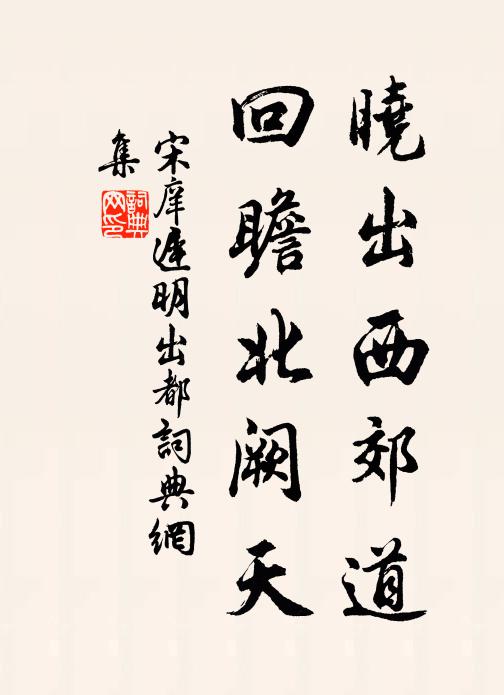 曉出西郊道
回瞻北闕天
宋庠遲明出都詞典網
集
詞典
網印